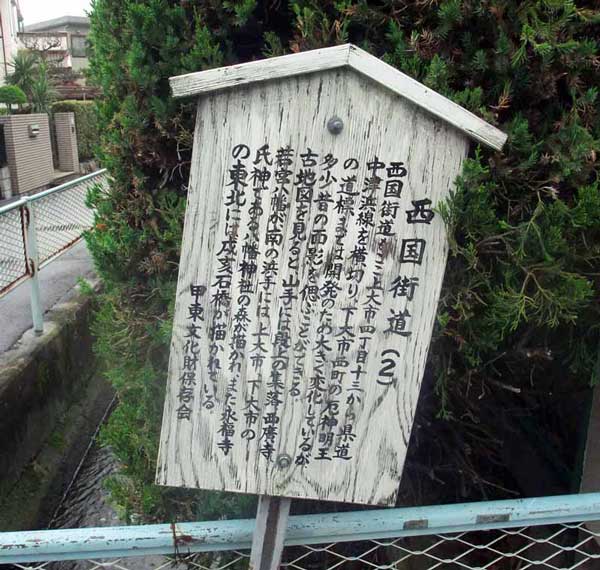 西国街道（2）
西国街道もここ上大市四丁目十三から県道
中津浜線を横切り、下大市西町の石神明王
の道標までは開発のため大きく変化しているが
多少昔の面影を偲ぶことができる
古地図を見ると、山手には段上の集落西廣寺
若宮八幡が南の浜手には、上大市、下大市の
氏神である八幡神社の森が描かれ、また永福寺
の東北には戌亥石橋が描かれている。
甲東文化財保存会